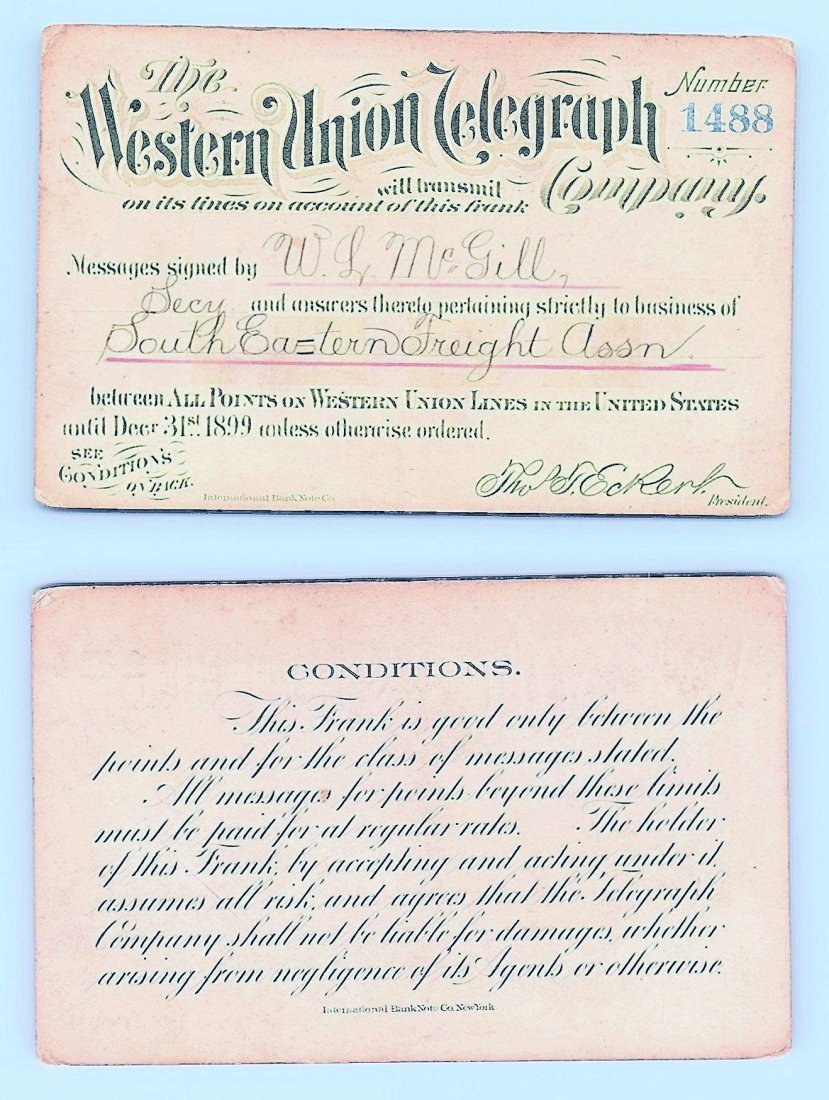 The
Western Union Telegraph
Company
Number
1488
will transmit
on its lines on account of this frank
Messages signed by W. L. McGill,
Secy and answers thereto pertaining strictly to business of
South Eastern Freight Assn.
between ALL POINTS ON WESTERN UNION LINES IN THE UNITED STATES
until Decr 31st 1899 unless otherwise ordered.
SEE
CONDITIONS
ON BACK.
International Bank Note Co.
Tho.s T. Eckert
President.
CONDITIONS.
This Frank is good only between the
points and for the class of messages stated.
All messages for points beyond these limits
must be paid for at regular rates. The holder
of this Frank, by accepting and acting under it,
assumes all risk, and agrees that the Telegraph
Company shall not be liable for damages, whether
arising from negligence of its Agents or otherwise.
International Bank Note Co. New York